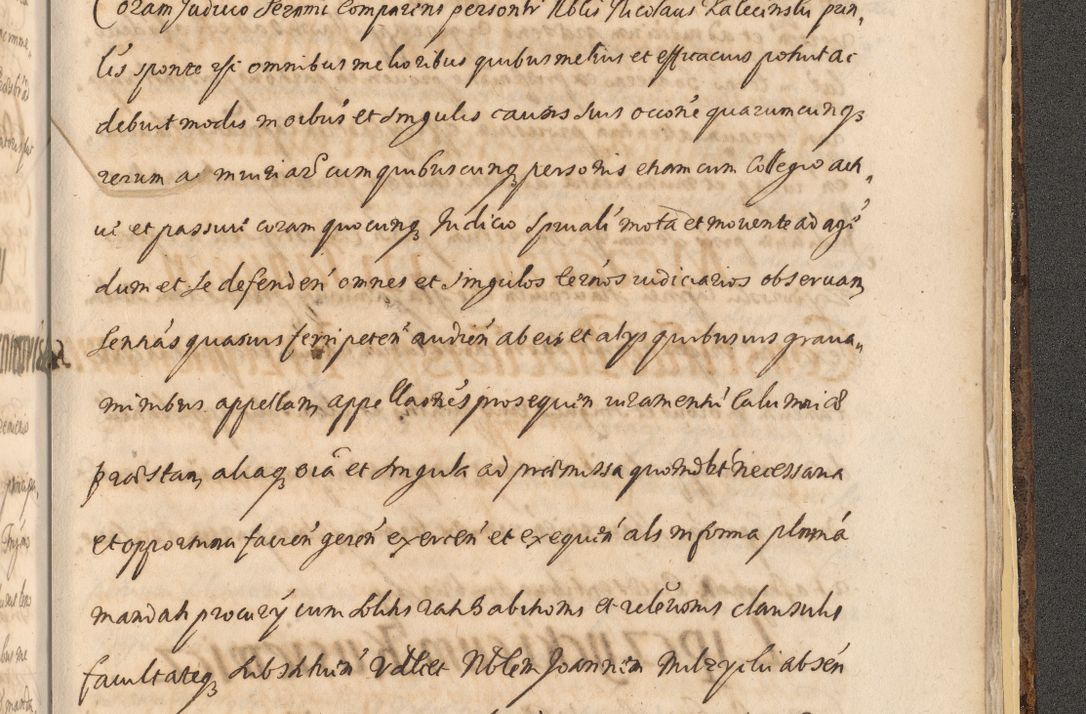 Coram Judicio Seremi Comparens personlr Nblis Nicolaus Zaleeinski prin,
lis sponte rsc omnibus melioribus quibus melius et efficacius potuit ac
debuit modis moribus et singulis causis suis occone quarumcunq
rerum ac cum quibuscunq personis etiam cum Collegio acti,
ve et passive coram quocunq Judicio spirali mota et movente ad agen
dum et se defenden omnes et singulos termos iudiciarios observan,
sentias quasvis ferri peten audien ab eis et alys quibusvis grava,
minibus appellan, appellaones prosequen iuramentu Calumniae
praestan, aliaq oia et singula ad praemissa quomodolt necessaria
et opportuna facien geren exercen et exequen als in forma plenia
mandati procury cum solitis rati habitionis et relevonis clausulis
facultateq substituen Vdlicet Nblem Joannem absen